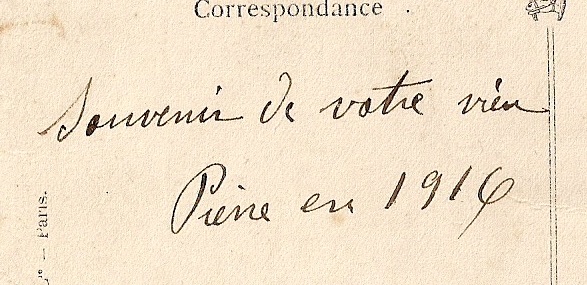 Correspondance
Souvenir de votre vieu
Pierre en 1916
ie – Paris.